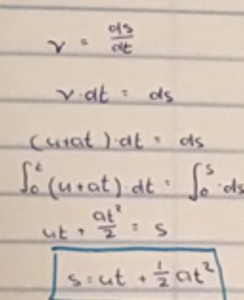 v = ds/dt
v·dt = ds
(u+at)·dt = ds
∫₀ᵗ (u+at)·dt = ∫₀ˢ ·ds
ut + at²/2 = s
s = ut + ½ at²